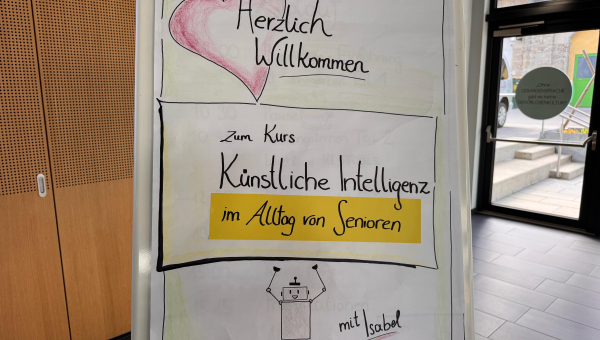 Herzlich
Willkommen
Zum Kurs
Künstliche Intelligenz
im Alltag von Senioren
mit Isabel